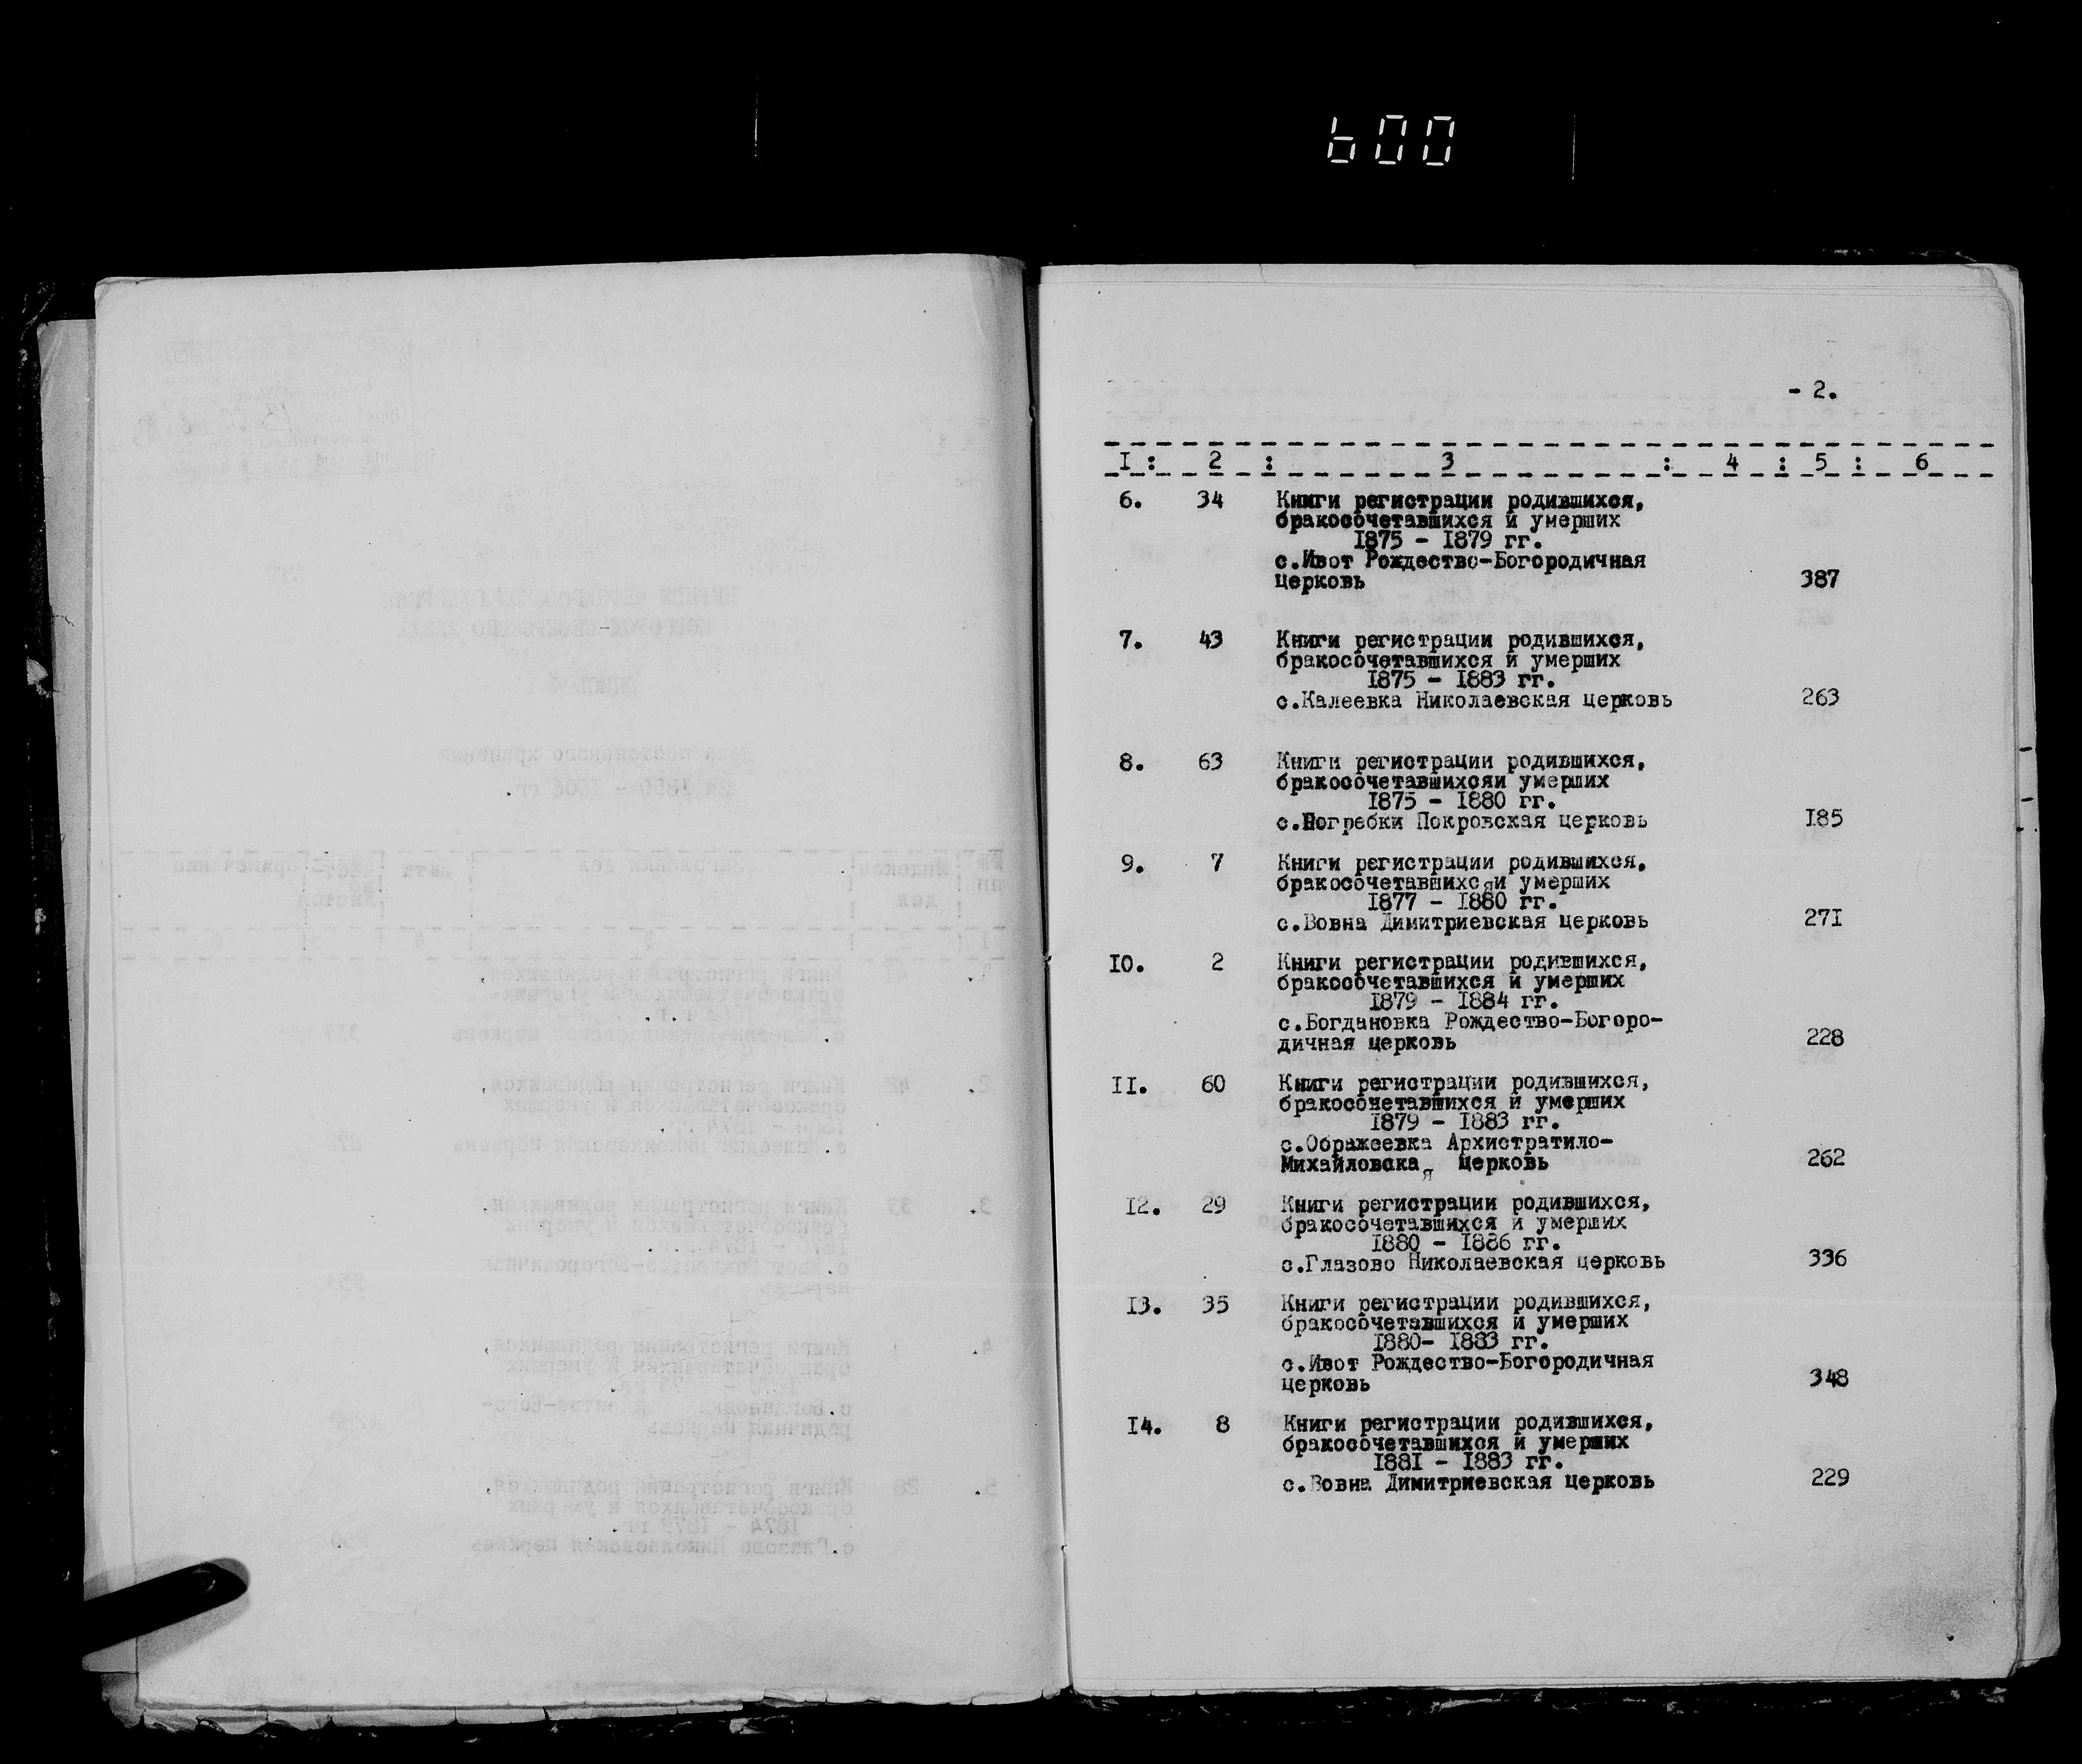 600
- 2.
I : 2 : 3 : 4 : 5 : 6
6. 34 Книги регистрации родившихся,
бракосочетавшихся и умерших
1875 - 1879 гг.
с.Ивот Рождество-Богородичная
церковь 387
7. 43 Книги регистрации родившихся,
бракосочетавшихся и умерших
1875 - 1883 гг.
с.Калеевка Николаевская церковь 263
8. 63 Книги регистрации родившихся,
бракосочетавшихсяи умерших
1875 - 1880 гг.
с.Погребки Покровская церковь 185
9. 7 Книги регистрации родившихся,
бракосочетавшихся и умерших
1877 - 1880 гг.
с.Вовна Димитриевская церковь 271
10. 2 Книги регистрации родившихся,
бракосочетавшихся и умерших
1879 - 1884 гг.
с.Богдановка Рождество-Богоро-
дичная церковь 228
II. 60 Книги регистрации родившихся,
бракосочетавшихся и умерших
1879 - 1883 гг.
с.Ображеевка Архистратило-
Михайловская церковь 262
12. 29 Книги регистрации родившихся,
бракосочетавшихся и умерших
1880 - 1886 гг.
с.Глазово Николаевская церковь 336
13. 35 Книги регистрации родившихся,
бракосочетавшихся и умерших
1880- 1883 гг.
с.Ивот Рождество-Богородичная
церковь 348
14. 8 Книги регистрации родившихся,
бракосочетавшихся и умерших
1881 - 1883 гг.
с.Вовна Димитриевская церковь 229